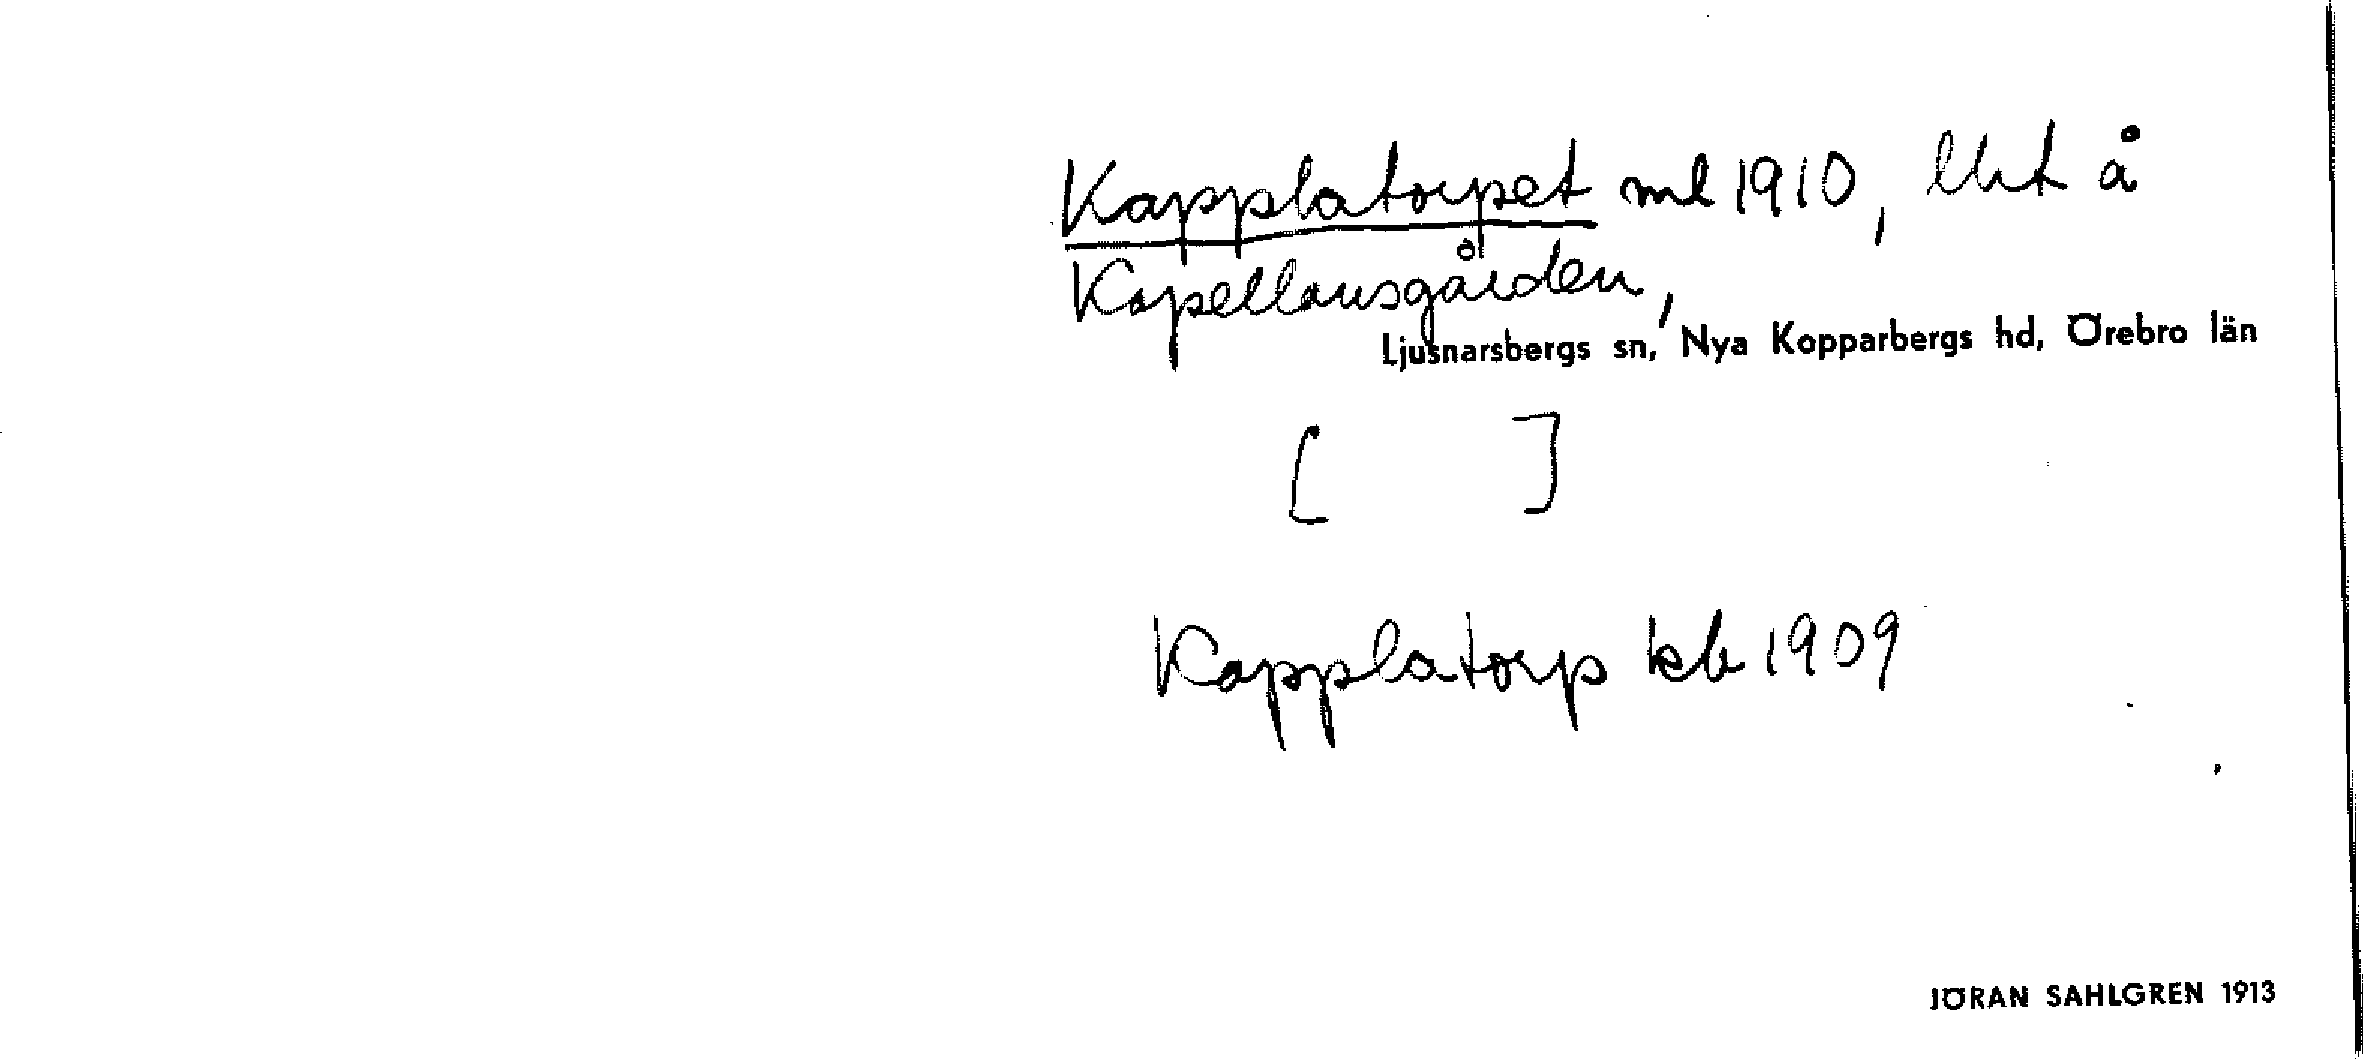 Kapplatorpet ml 1910, lht å
Kapellansgården,
Ljusnarsbergs sn, Nya Kopparbergs hd, Örebro län
[ ]
Kapplatorp kb 1909
JÖRAN SAHLGREN 1913